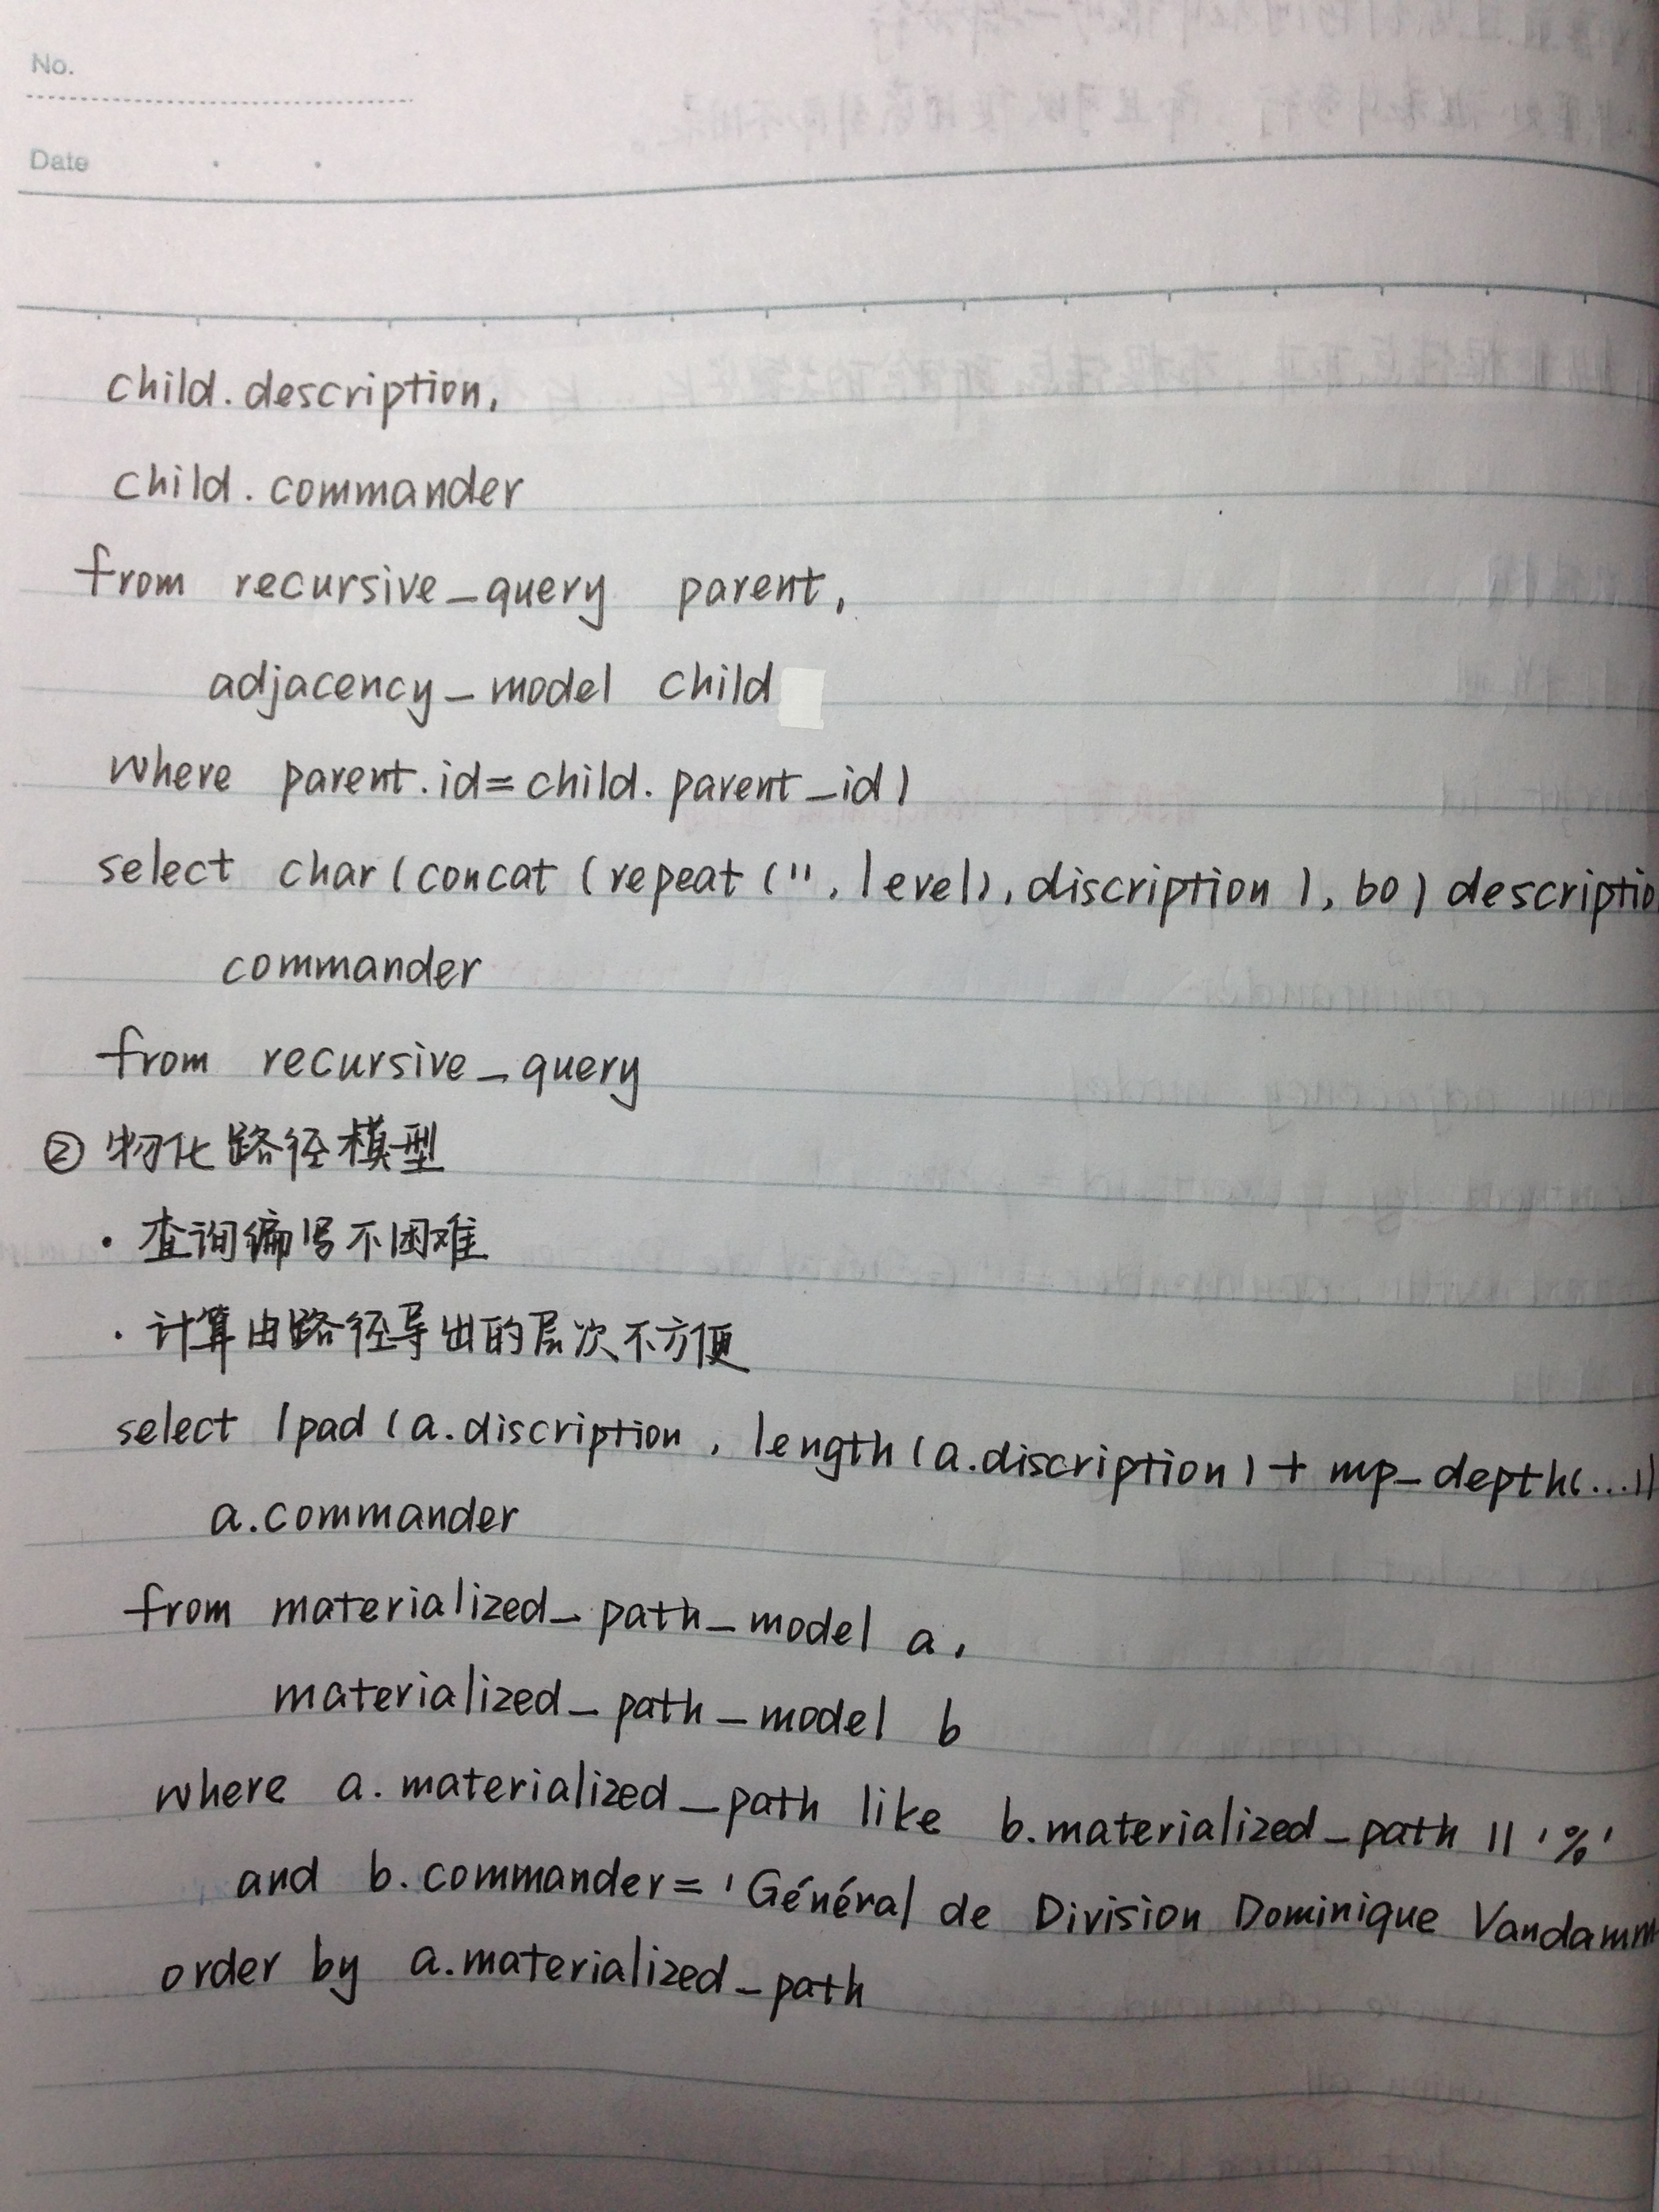 No.
Date
child.description,
child.commander
from recursive_query parent,
adjacency_model child
where parent.id=child.parent_id)
select char(concat(repeat('', level), discription), 60) descriptio
commander
from recursive_query
② 物化路径模型
· 查询编写不困难
· 计算由路径导出的层次不方便
select lpad(a.discription, length(a.discription)+mp_depth(...))
a.commander
from materialized_path_model a,
materialized_path_model b
where a.materialized_path like b.materialized_path || '%'
and b.commander='Général de Division Dominique Vandamm
order by a.materialized_path